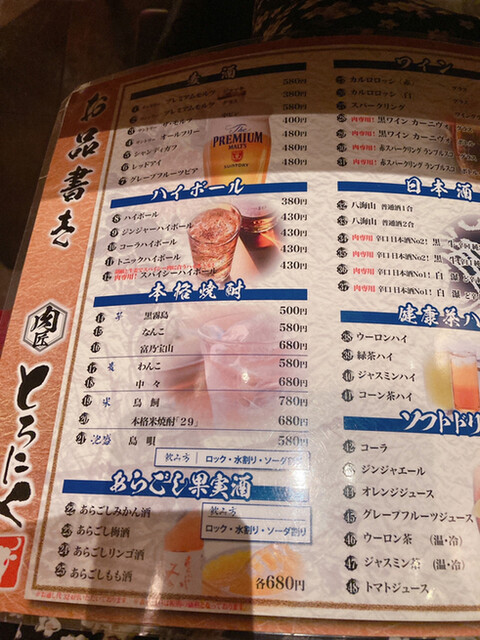 お品書き
肉匠
とろにく
麦酒
1 サントリー プレミアムモルツ 580円
プレミアムモルツ 380円
3 サントリー ザ・モルツ 580円
4 サントリー オールフリー 400円
5 シャンディガフ 480円
6 レッドアイ 480円
7 グレープフルーツビア 480円
The PREMIUM MALT'S
SUNTORY
ハイボール
8 ハイボール 380円
9 ジンジャーハイボール 430円
10 コーラハイボール 430円
11 トニックハイボール 430円
12 肉専用! スパイシーハイボール 430円
本格焼酎
14 芋 黒霧島 500円
15 なんこ 580円
16 富乃宝山 680円
17 麦 わんこ 580円
18 中々 680円
19 米 鳥飼 780円
20 本格米焼酎「29」 680円
21 泡盛 島唄 580円
飲み方 ロック・水割り・ソーダ割り
あらごし果実酒
22 あらごしみかん酒
23 あらごし梅酒
24 あらごしリンゴ酒
25 あらごしもも酒
飲み方
ロック・水割り・ソーダ割り
各680円
ワイン
カルロロッシ 赤
カルロロッシ 白
27 スパークリング
肉専用! 黒ワイン カーニヴ
肉専用! 黒ワイン カーニヴ
30 肉専用! 赤スパークリング ランブルスコ
31 肉専用! 赤スパークリング ランブルスコ
日本酒
32 八海山 普通酒1合
33 八海山 普通酒2合
34 肉専用! 辛口日本酒No2! 黒
35 肉専用! 辛口日本酒No2! 黒
36 肉専用! 辛口日本酒No1! 白
37 肉専用! 辛口日本酒No1! 白
健康茶ハ
38 ウーロンハイ
39 緑茶ハイ
40 ジャスミンハイ
41 コーン茶ハイ
ソフトドリ
42 コーラ
43 ジンジャエール
44 オレンジジュース
45 グレープフルーツジュース
46 ウーロン茶 (温・冷)
47 ジャスミン茶 (温・冷)
48 トマトジュース